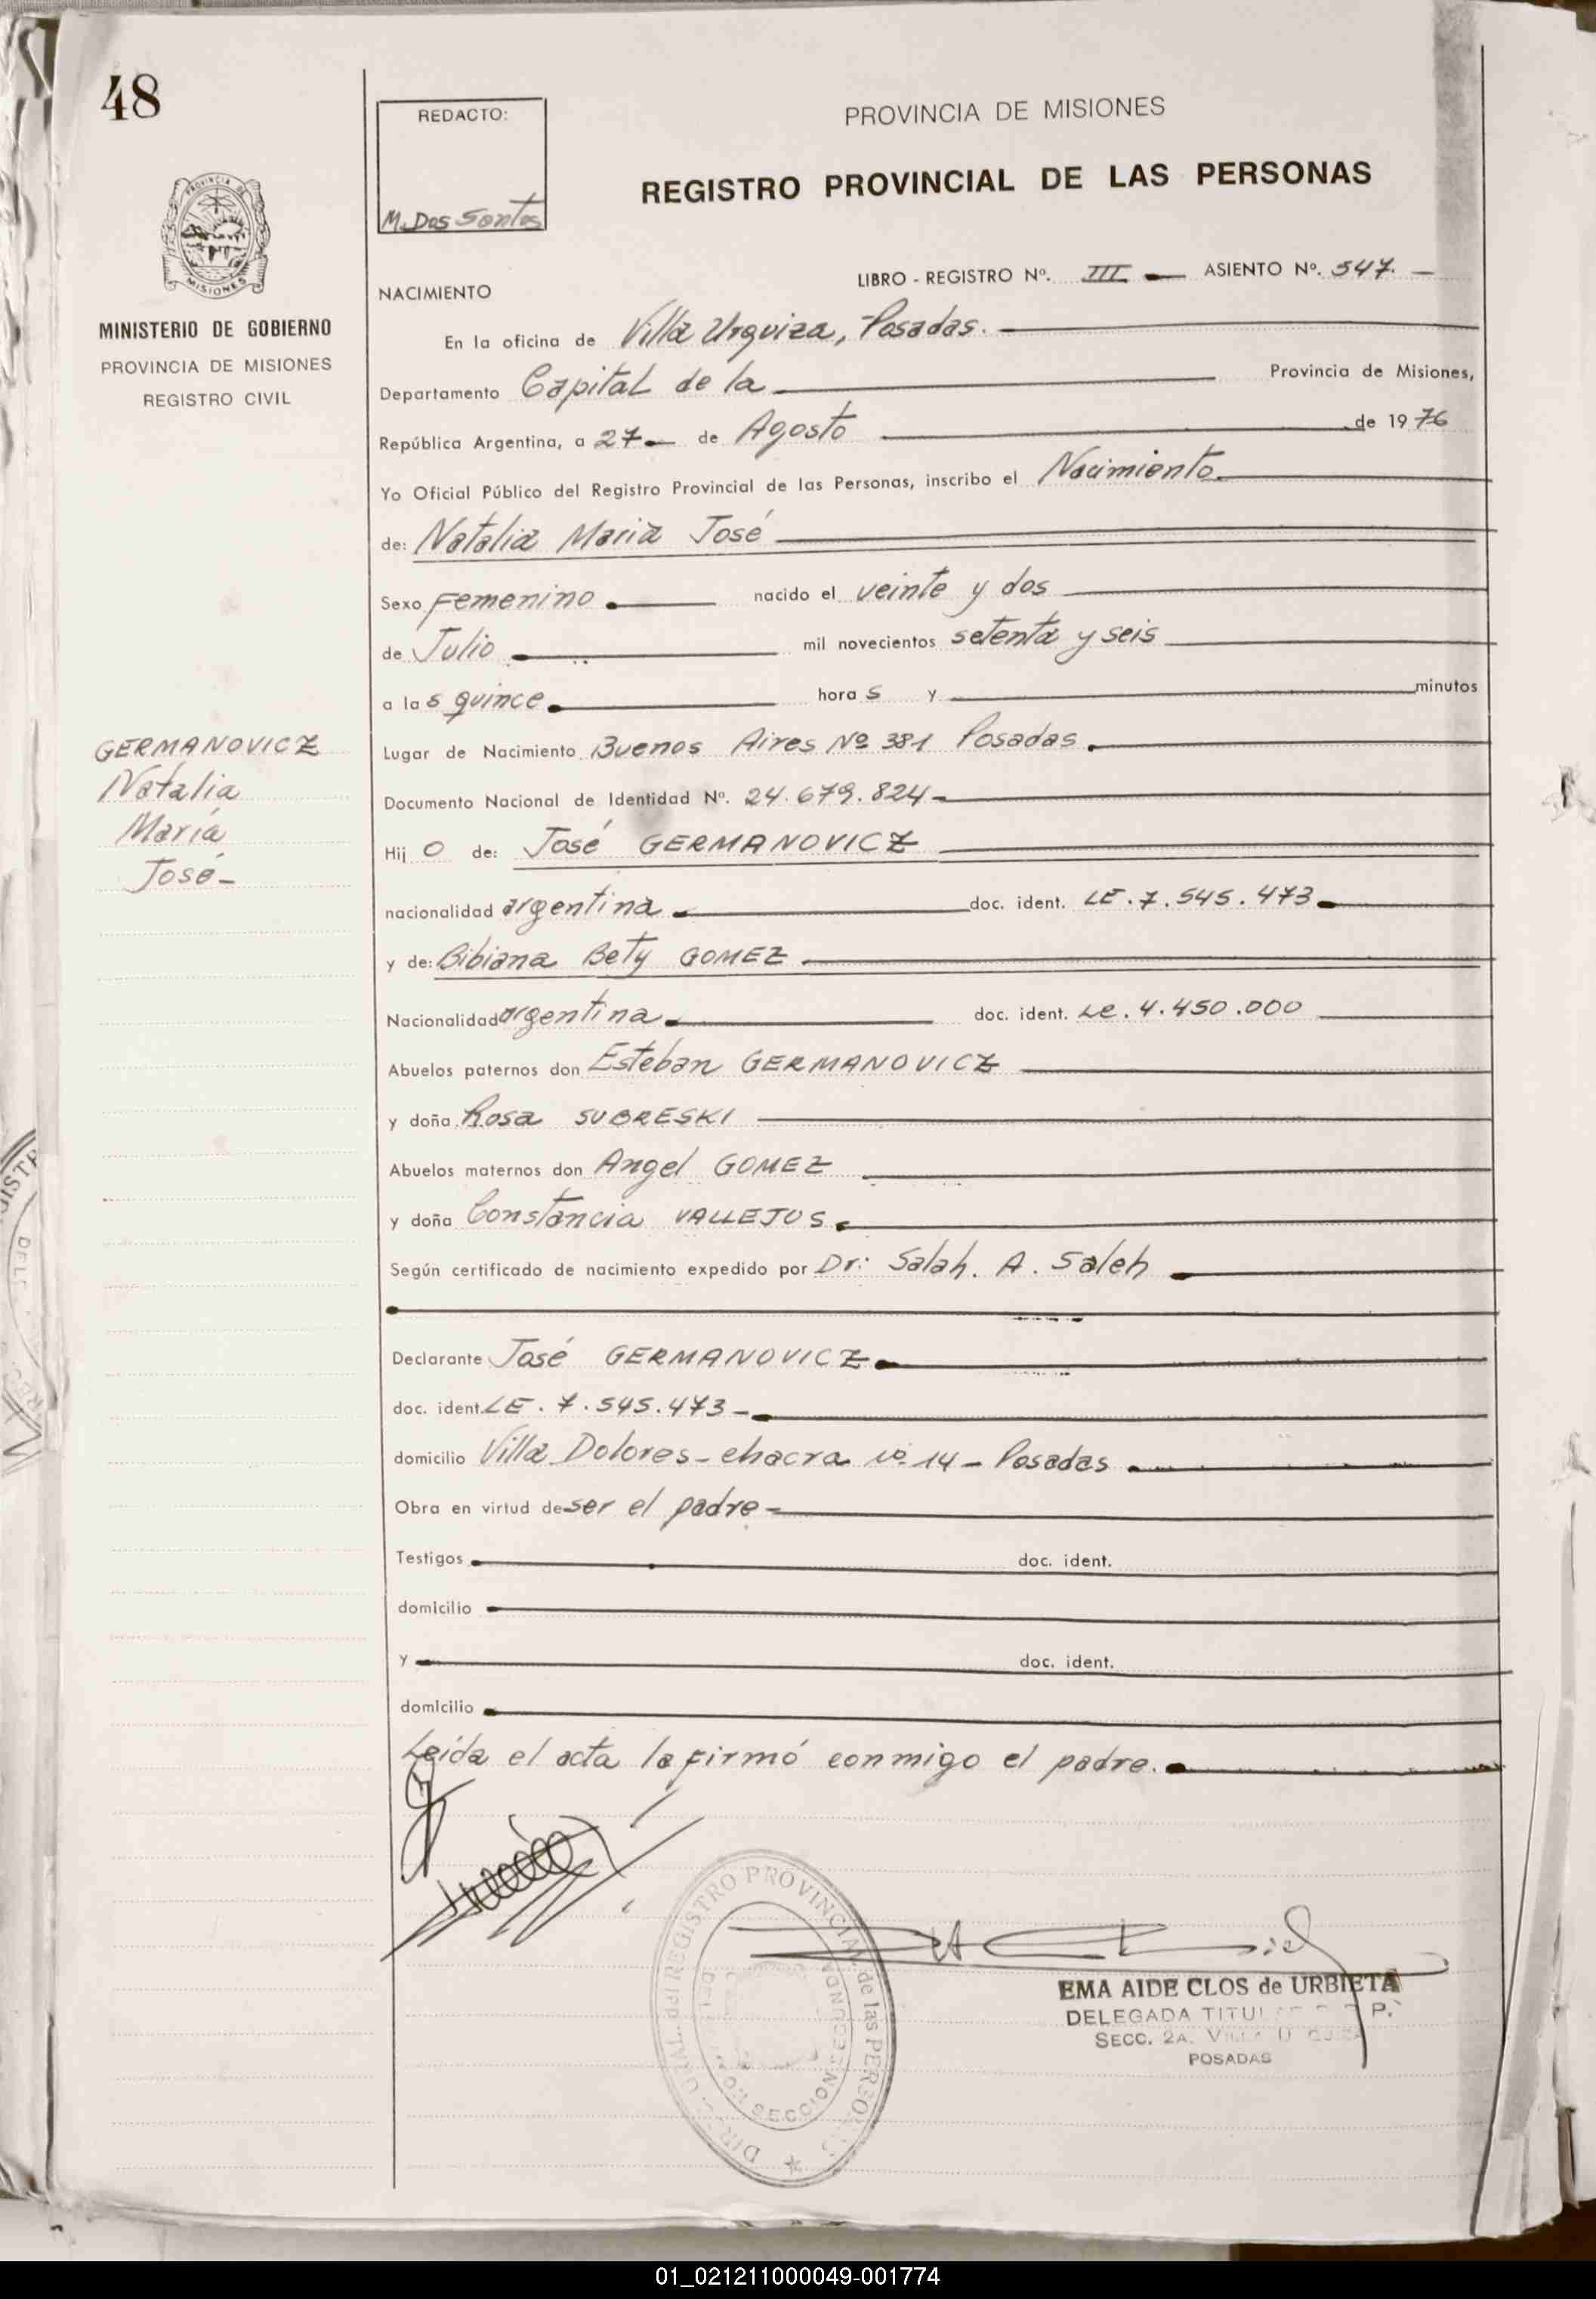 48
REDACTO:
M. Dos Santos
PROVINCIA DE MISIONES
REGISTRO PROVINCIAL DE LAS PERSONAS
PROVINCIA DE
MISIONES
MINISTERIO DE GOBIERNO
PROVINCIA DE MISIONES
REGISTRO CIVIL
LIBRO - REGISTRO Nº. III - ASIENTO Nº. 547. -
NACIMIENTO
En la oficina de Villa Urquiza, Posadas.
Departamento Capital de la Provincia de Misiones,
República Argentina, a 27 - de Agosto de 1976
Yo Oficial Público del Registro Provincial de las Personas, inscribo el Nacimiento.
de: Natalia Maria José
Sexo Femenino. nacido el veinte y dos
de Julio mil novecientos setenta y seis
a las quince. horas y minutos
GERMANOVICZ
Natalia
María
José-
Lugar de Nacimiento Buenos Aires Nº 381 Posadas.
Documento Nacional de Identidad Nº. 24.679.824-
Hij O de: José GERMANOVICZ
nacionalidad argentina. doc. ident. LE. 7.545.473
y de: Bibiana Bety GOMEZ
Nacionalidad argentina doc. ident. Le. 4.450.000
Abuelos paternos don Esteban GERMANOVICZ
y doña Rosa SUBRESKI
Abuelos maternos don Angel GOMEZ
y doña Constancia VALLEJOS.
Según certificado de nacimiento expedido por Dr: Salah. A. Saleh
Declarante José GERMANOVICZ
doc. ident. LE. 7.545.473-
domicilio Villa Dolores - chacra nº. 14 - Posadas
Obra en virtud de ser el padre-
Testigos doc. ident.
domicilio
y doc. ident.
domicilio
Leída el acta la firmó conmigo el padre.
del REGISTRO PROVINCIAL de las PERSONAS
SECCION SEGUNDA
EMA AIDE CLOS de URBIETA
DELEGADA P.
SECC. 2A.
POSADAS
01_021211000049-001774